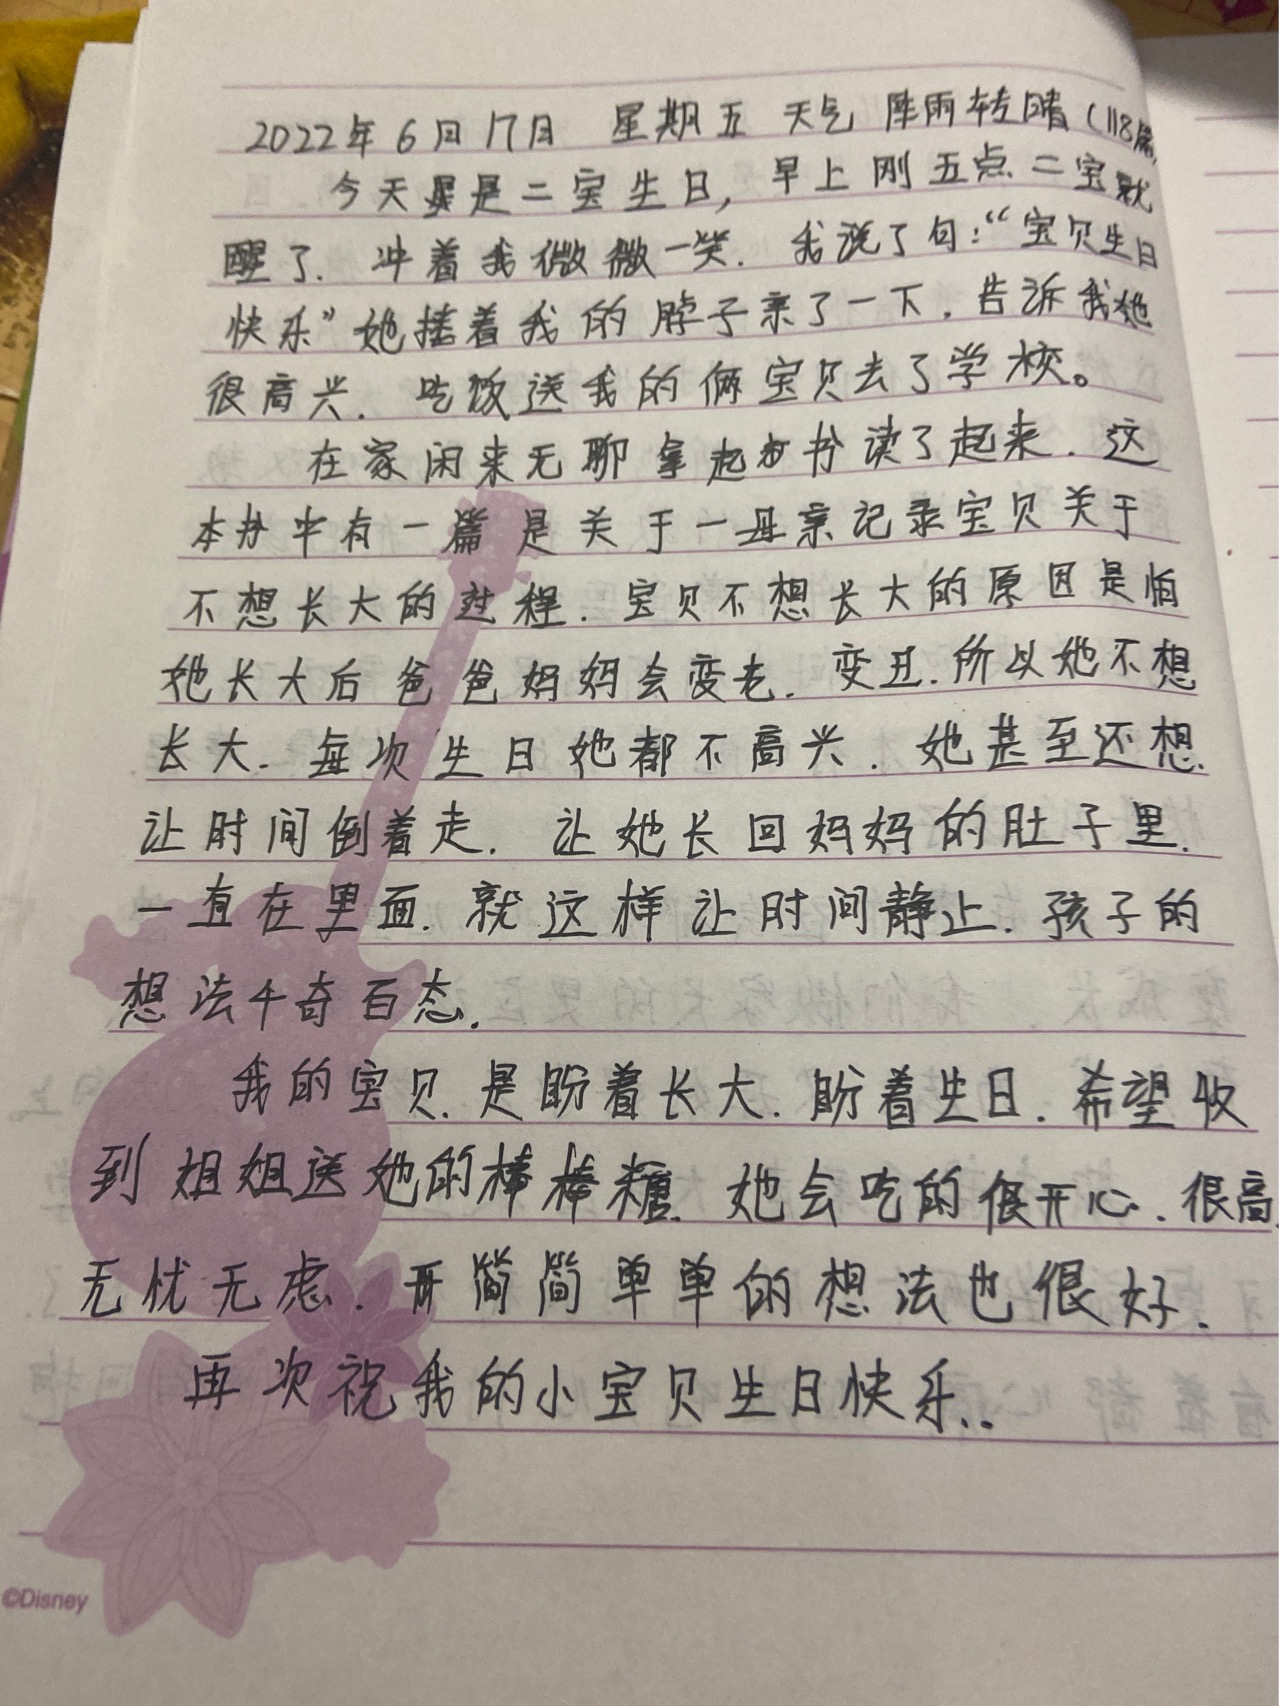 2022年6月17日 星期五 天气 阵雨转晴(118篇)
今天是二宝生日,早上刚五点二宝就
醒了.冲着我微微一笑.我说了句:“宝贝生日
快乐”她搂着我的脖子亲了一下.告诉我她
很高兴.吃饭送我的俩宝贝去了学校。
在家闲来无聊拿起书读了起来.这
本书中有一篇是关于一母亲记录宝贝关于
不想长大的过程.宝贝不想长大的原因是怕
她长大后爸爸妈妈会变老.变丑.所以她不想
长大.每次生日她都不高兴.她甚至还想
让时间倒着走.让她长回妈妈的肚子里.
一直在里面.就这样让时间静止.孩子的
想法千奇百态.
我的宝贝.是盼着长大.盼着生日.希望收
到姐姐送她的棒棒糖.她会吃的很开心.很高
无忧无虑.简简单单的想法也很好.
再次祝我的小宝贝生日快乐..
©Disney